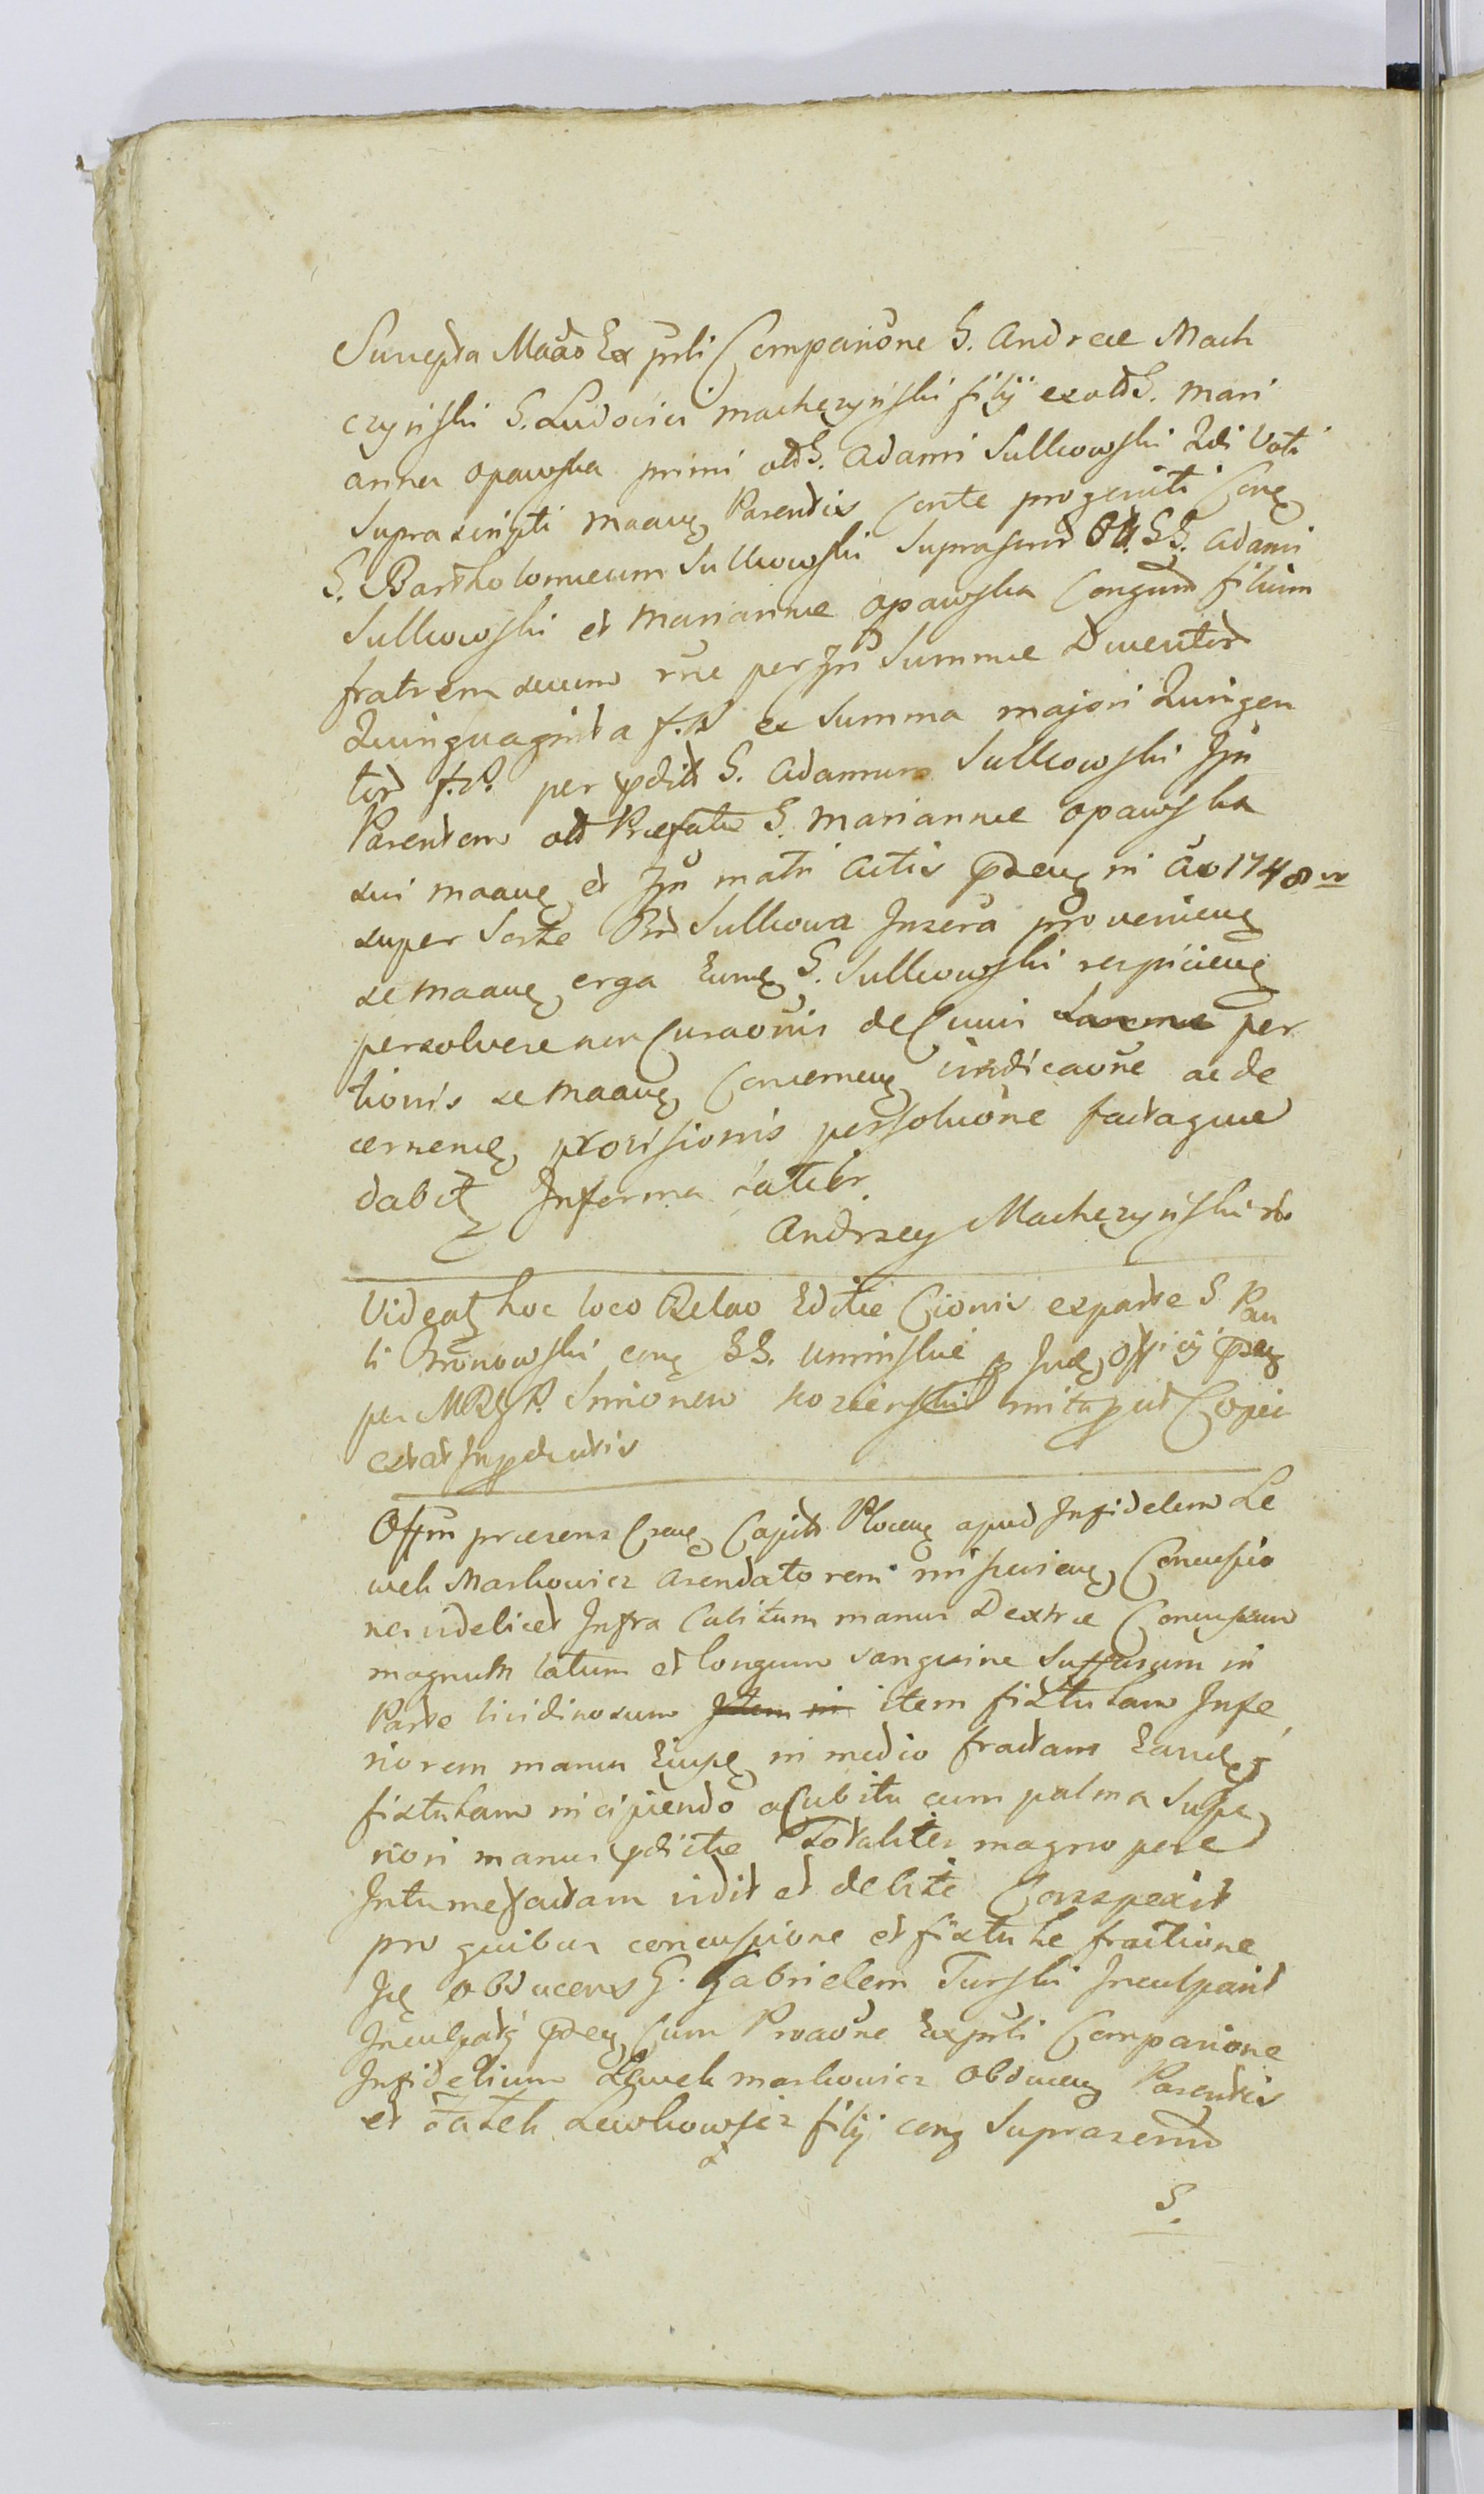 Suscepta Maāo Ex prłi Comparīone G. Andreae Mach
czyński G. Ludovici Machczyński filij ex olt G. Mari
anna Opawska primi olt G. Adami Sulkowski 2di Voti
Suprascripti maaneʒ Parentis Conte progeniti Conʒ
G. Bartholomaeum Sulkowski Suprascrid Olt. GG. Adami
Sulkowski et Mariannae Opawska Congum filium
fratrem suum rne per Jpn Summae Ducentord
Quinquaginta f. P ex Summa majori Quingen
tord f. P. per pdittt G. Adamum Sulkowski Jpn
Parentem olt Praefatae G. Mariannae Opawska
sui maaneʒ et Jpn matri Actis praeʒ in Ao 1748vo
super Sorte Bnd Sulkowa Inserā provenienʒ
se maaneʒ erga Eumʒ G. Sulkowski respicienʒ
persolvere non Curaōnis de Cuius per
tionis se maaneʒ Concerneʒ vindicaōne ac de
cerneneʒ provisionis persoluōne factaque
dabitʒ Informa ratibr.
Andrzey Machczyński
Videatʒ hoc loco Relao Editae Cionis ex parte G Pau
li Wronowski conʒ GG. Uminskie p Jud Officij praeʒ
per MRGP. Simonem kozienski ut Copia
extat
Offm praesens Crenʒ Capittt Ploceneʒ apud Infidelem Le
wek Markowicz Arendatorem Concussio
ne videlicet Infra Cubitum manus Dextrae Concussum
magnum latum et longum sanguine Suffusum in
Parte lividinosum Item in item fistulam Infe
riorem manus Eiusdʒ in medio fractam Eandʒ
fistulam incipiendo a Cubitu cum palma Supe
riori manus pdictae Totaliter magnopere
Intumefactam vidit et debite Conspexit
pro quibus concussione et fistulae fractione
Jpʒ Obducens G. Gabrielem Turski Inculpavit
Inculpatʒ praeʒ Cum Proaōne Ex prłi Comparione
Infidelium Lewek Markowicz Obducenʒ Parentis
et Jatek Lewkowicz filij conʒ Suprascrid
G.